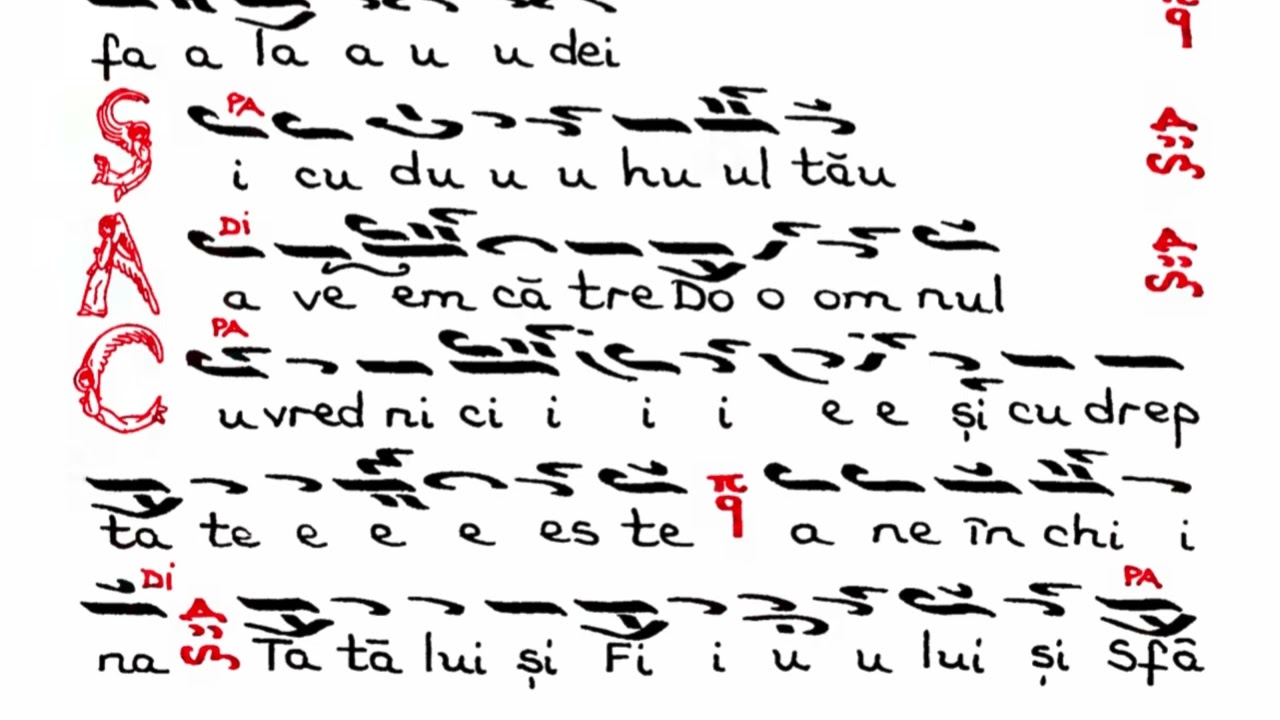 fa a la a u u dei
PA
S i cu du u u hu ul tău
Di
A a ve em că tre Do o om nul
PA
C u vred ni ci i i i e e și cu drep
ta te e e e es te a ne în chi i
Di PA
na Ta tă lui și Fi i u u lui și Sfâ